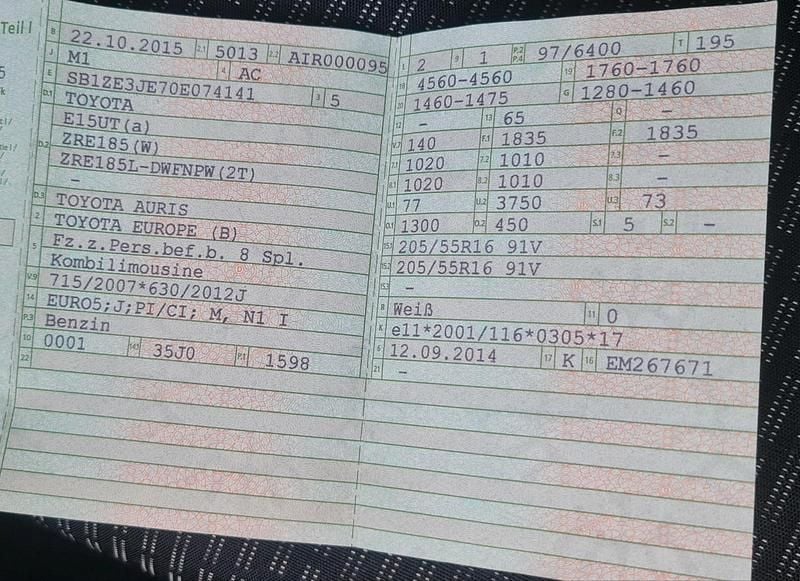 Teil I
B 22.10.2015 2.1 5013 2.2 AIR000095
J M1 4 AC
E SB1ZE3JE70E074141 3 5
D.1 TOYOTA
E15UT(a)
D.2 ZRE185(W)
ZRE185L-DWFNPW(2T)
–
D.3 TOYOTA AURIS
2 TOYOTA EUROPE (B)
5 Fz.z.Pers.bef.b. 8 Spl.
Kombilimousine
V.9 715/2007*630/2012J
14 EURO5;J;PI/CI; M, N1 I
P.3 Benzin
10 0001 14.1 35J0 P.1 1598
22
L 2 9 1 P.2 P.4 97/6400 T 195
18 4560-4560 19 1760-1760
20 1460-1475 G 1280-1460
12 – 13 65 Q –
V.7 140 F.1 1835 F.2 1835
7.1 1020 7.2 1010 7.3 –
8.1 1020 8.2 1010 8.3 –
U.1 77 U.2 3750 U.3 73
O.1 1300 O.2 450 S.1 5 S.2 –
15.1 205/55R16 91V
15.2 205/55R16 91V
15.3 –
R Weiß 11 0
K e11*2001/116*0305*17
6 12.09.2014 17 K 16 EM267671
21 –